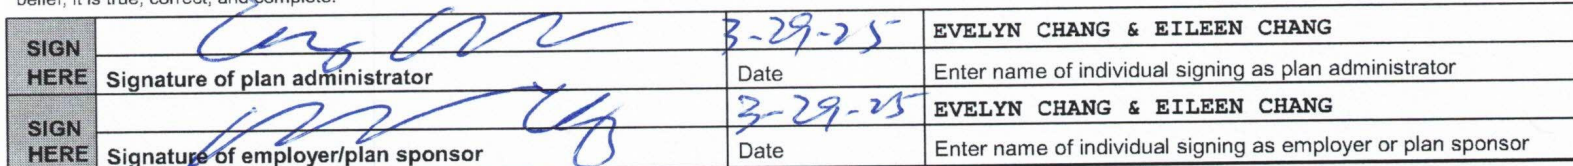 belief, it is true, correct, and complete.
SIGN HERE
3-29-25
EVELYN CHANG & EILEEN CHANG
Signature of plan administrator
Date
Enter name of individual signing as plan administrator
SIGN HERE
3-29-25
EVELYN CHANG & EILEEN CHANG
Signature of employer/plan sponsor
Date
Enter name of individual signing as employer or plan sponsor